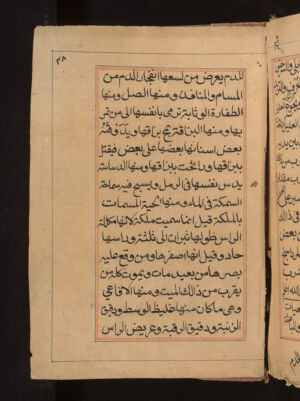 ٣٨
للدم يعرض من لسعها انفجار الدم من
المسام والمنافذ ومنها الصل ومنها
الطفارة الوثابة ترمى بانفسها الى من تمر
بها ومنها البزاقة تريح بزاقها ويدق
بعض اسنانها بعضها على بعض فيقتل
بزاقها ورائحة بزاقها ومنها الدساسة
يدس نفسها فى الرمل ويسبح فيه سباحة
السمكة فى الماء ومنها الحية المسمات
بالملكة قيل انما سميت ملكة لانها مكللة
الراس طولها شبران الى ثلثة وراسها
حاد وقيل انها اصفر هاو من وقع عليه
بصرها من بعيد مات ويموت كل من
يقرب من ذلك الميت ومنها الافاعى
وهى ما كان منها غليظ الوسط ودقيق
الذنب ودقيق الرقبة وعريض الراس